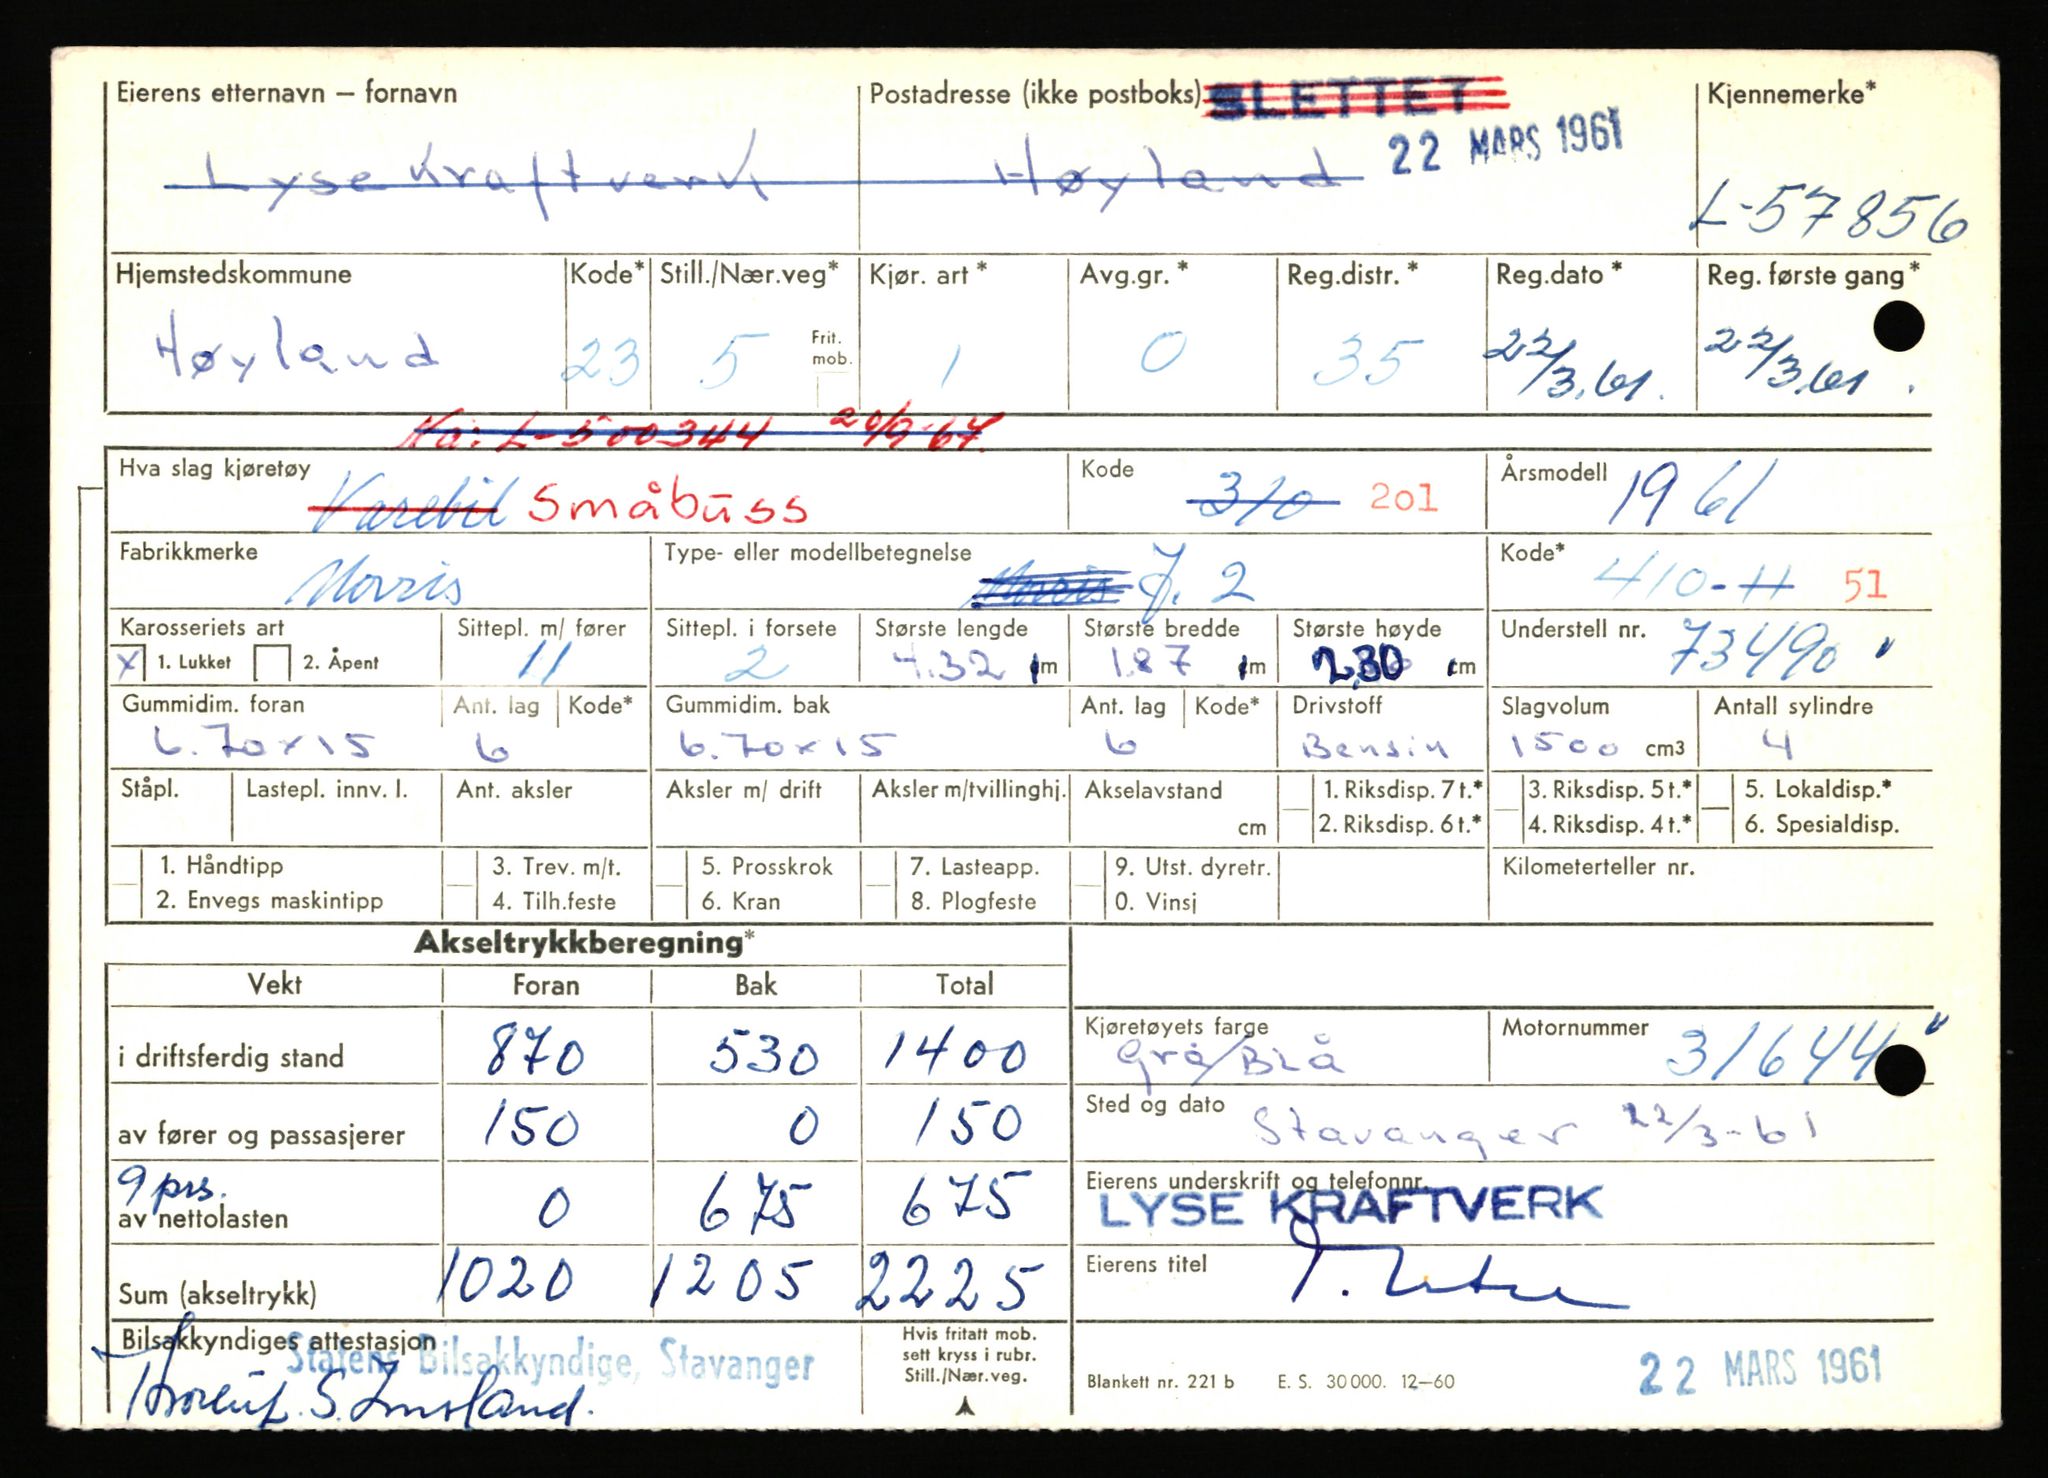 Eierens etternavn – fornavn Postadresse (ikke postboks) SLETTET Kjennemerke*
22 MARS 1961
Lyse Kraftverk Høyland L-57856
Hjemstedskommune Kode* Still./Nær.veg* Kjør. art * Avg.gr. * Reg.distr. * Reg.dato * Reg. første gang *
Frit. mob.
Høyland 23 5 1 0 35 22/3.61. 22/3.61.
Nå: L-500344 20/9-67.
Hva slag kjøretøy Varebil Småbuss Kode 310 201 Årsmodell 1961
Fabrikkmerke Morris Type- eller modellbetegnelse Morris J. 2 Kode* 410-H 51
Karosseriets art Sittepl. m/ fører Sittepl. i forsete Største lengde Største bredde Største høyde Understell nr.
X 1. Lukket 2. Åpent 11 2 4.32 cm 1.87 cm 2,30 cm 73490
Gummidim. foran Ant. lag Kode* Gummidim. bak Ant. lag Kode* Drivstoff Slagvolum Antall sylindre
6.70x15 6 6.70x15 6 Bensin 1500 cm3 4
Ståpl. Lastepl. innv. l. Ant. aksler Aksler m/ drift Aksler m/tvillinghj. Akselavstand cm 1. Riksdisp. 7 t.* 3. Riksdisp. 5 t.* 5. Lokaldisp.*
2. Riksdisp. 6 t.* 4. Riksdisp. 4 t.* 6. Spesialdisp.
1. Håndtipp 3. Trev. m/t. 5. Prosskrok 7. Lasteapp. 9. Utst. dyretr. Kilometerteller nr.
2. Envegs maskintipp 4. Tilh.feste 6. Kran 8. Plogfeste 0. Vinsj
Akseltrykkberegning*
Vekt Foran Bak Total
i driftsferdig stand 870 530 1400
Kjøretøyets farge Grå/Blå Motornummer 31644
av fører og passasjerer 150 0 150
Sted og dato Stavanger 22/3-61
9 prs.
av nettolasten 0 675 675
Eierens underskrift og telefonnr.
LYSE KRAFTVERK
Sum (akseltrykk) 1020 1205 2225
Eierens titel
Bilsakkyndiges attestasjon
Statens Bilsakkyndige, Stavanger
Hvis fritatt mob.
sett kryss i rubr.
Still./Nær.veg.
Blankett nr. 221 b E. S. 30 000. 12–60 22 MARS 1961